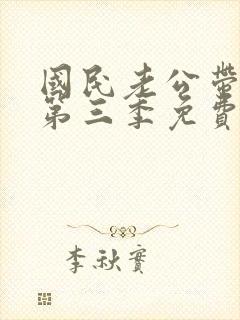 國民老公帶
第三季免費
李秋實